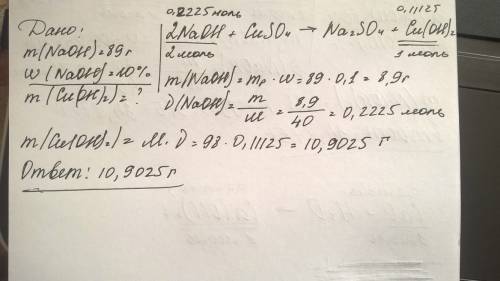 Дано:
m(NaOH)=89г
w(NaOH)=10%
m(Cu(OH)₂)=?
0,2225моль 0,11125
2NaOH + CuSO₄ → Na₂SO₄ + Cu(OH)₂
2моль 1моль
m(NaOH)=mр·w=89·0,1=8,9г
ν(NaOH)=m/M=8,9/40=0,2225моль
m(Cu(OH)₂)=M·ν=98·0,11125=10,9025 г
Ответ: 10,9025г